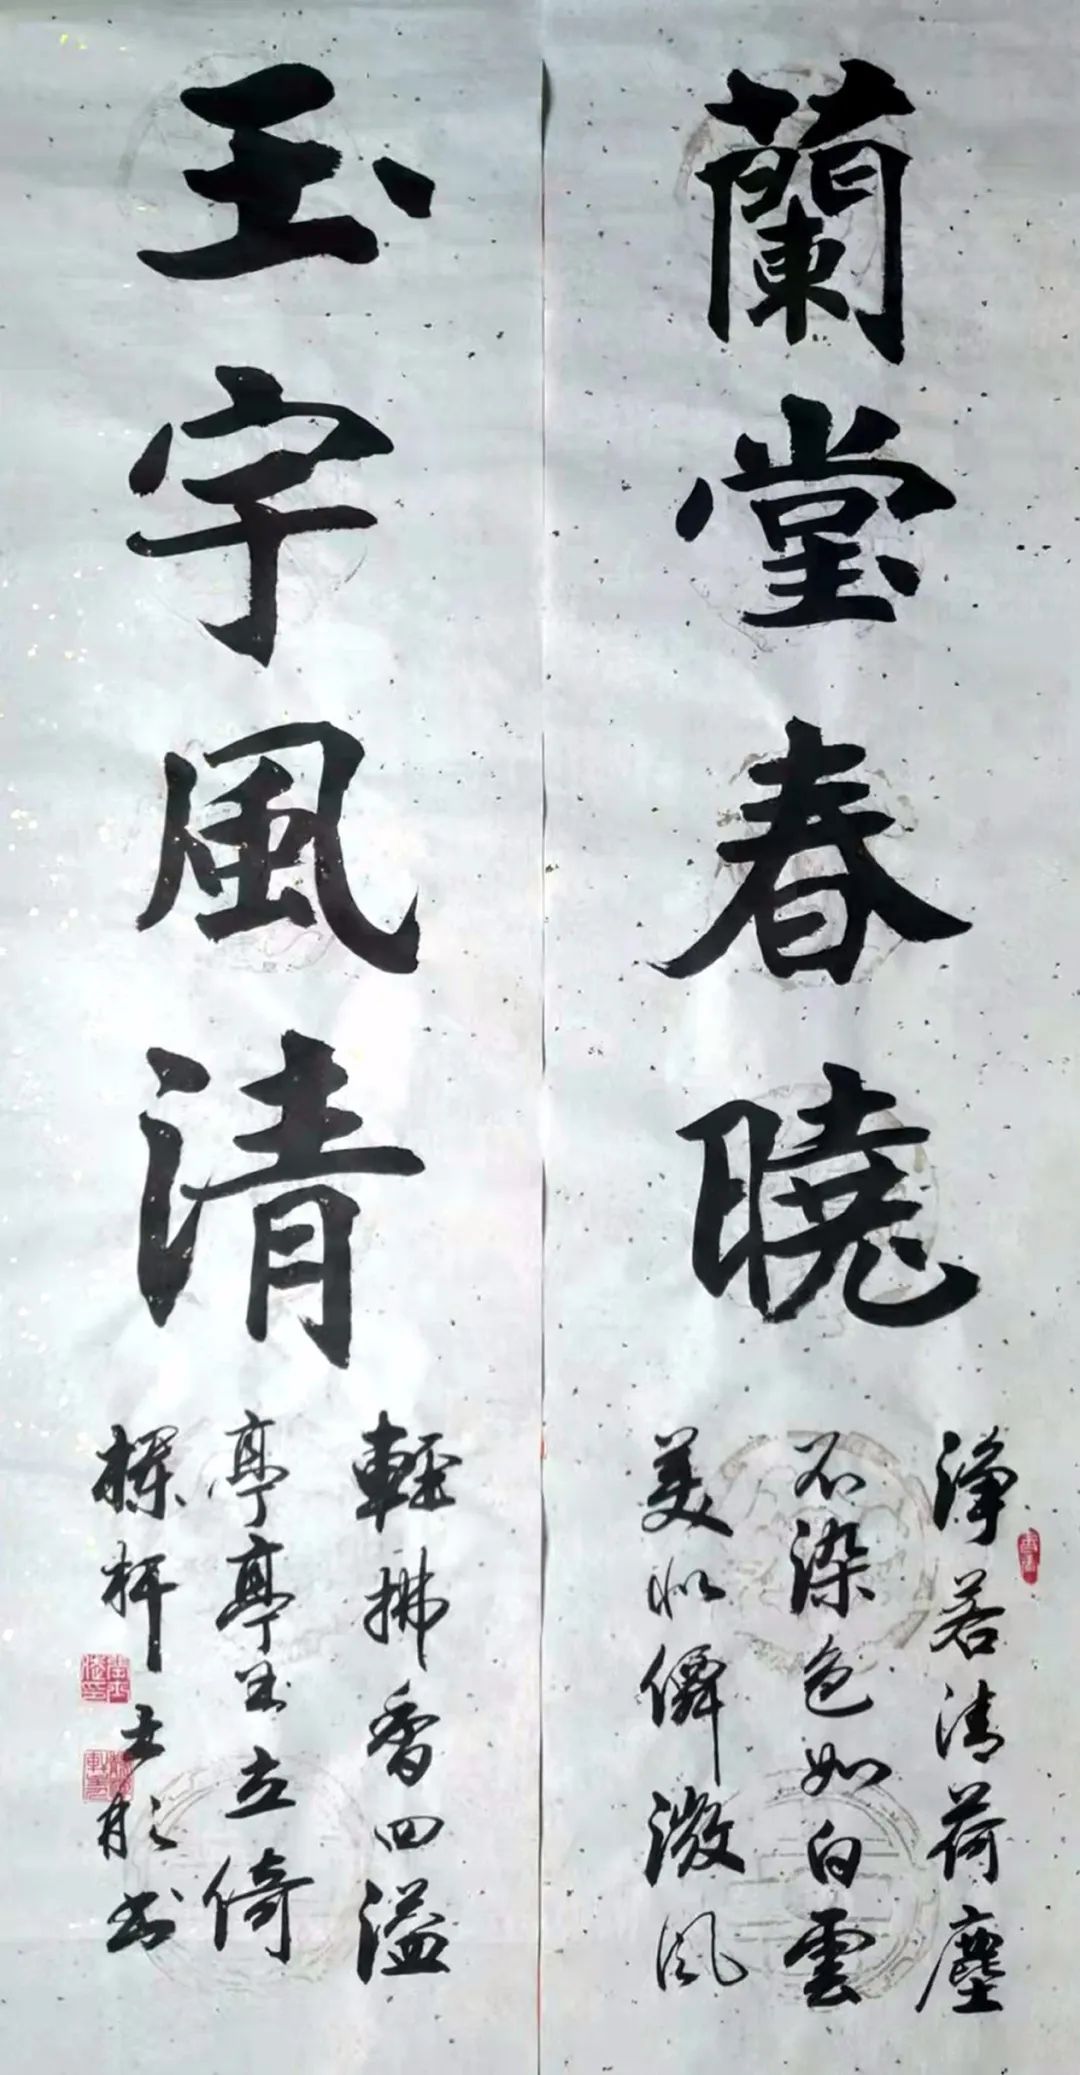 蘭堂春曉
淨若清荷塵
不染色如白雲
美似僊微風
玉宇風清
輕拂香四溢
亭亭玉立倚
欄杆 士 書